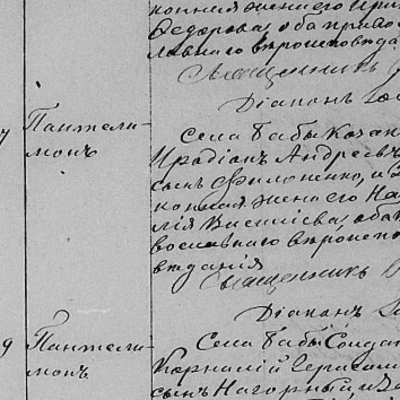 конная жена его Ири
Федорова, оба право
славнаго вѣроисповѣда
Священникъ
Діаконъ
Пантели-
монъ
Села Бабы Козак
Иродіонъ Андреевъ
сынъ Филоненко, и З
конная жена его На
лія Василіева, оба
вославнаго вѣроиспо
вѣданія
Священникъ
Діаконъ
9 Пантели-
монъ
Села Бабы Солда
Корнилій Герасим
сынъ Нагорный и За